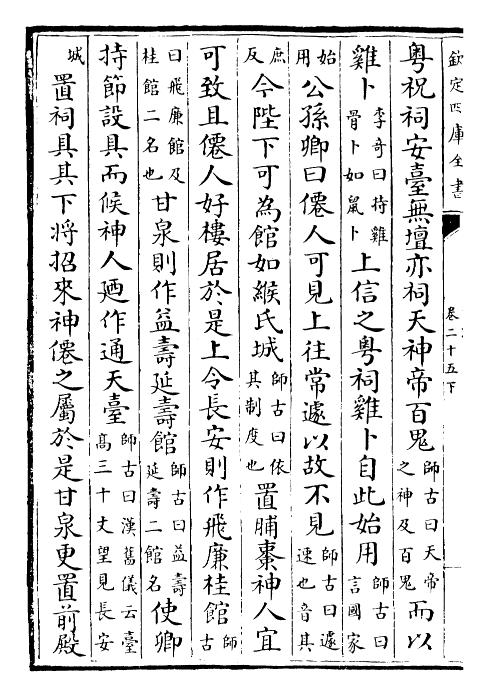 欽定四庫全書
卷二十五下
粵祝祠安臺無壇亦祠天神帝百鬼師古曰天帝之神及百鬼而以
雞卜李奇曰持雞骨卜如鼠卜上信之粵祠雞卜自此始用師古曰言國家
始用公孫卿曰僊人可見上往常遽以故不見師古曰遽速也音其
庶反今陛下可為館如緱氏城師古曰依其制度也置脯棗神人宜
可致且僊人好樓居於是上令長安則作飛廉桂館師古
曰飛廉館及桂館二名也甘泉則作益壽延壽館師古曰益壽延壽二館名使卿
持節設具而候神人廼作通天臺師古曰漢舊儀云臺高三十丈望見長安
城置祠具其下將招來神僊之屬於是甘泉更置前殿